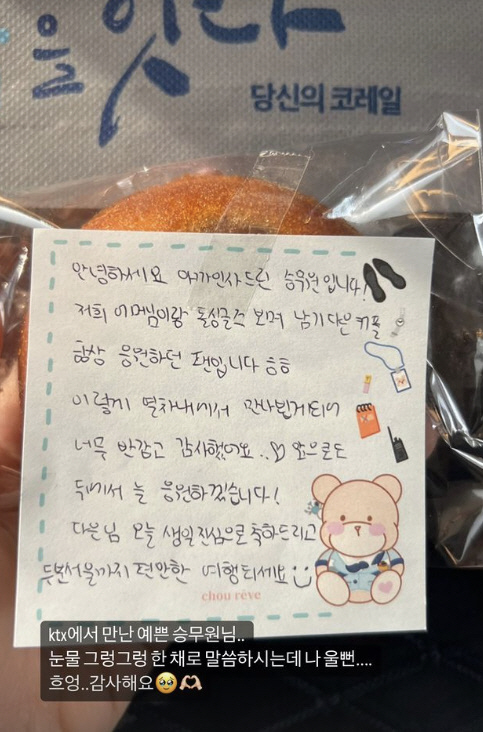 을 잇다
당신의 코레일
안녕하세요 아까인사드린 승무원입니다!
저희 어머님이랑 돌싱글즈 보며 남기다은커플
항상 응원하던 팬입니다 ㅎㅎ
이렇게 열차내에서 만나뵙게되어
너무 반갑고 감사했어요..♡ 앞으로도
뒤에서 늘 응원하겠습니다!
다은님 오늘 생일진심으로축하드리고
두분서울까지 편안한 여행되세요
chou rêve
ktx에서 만난 예쁜 승무원님..
눈물 그렁그렁 한 채로 말씀하시는데 나 울뻔....
흐엉..감사해요🥹🫶🏻